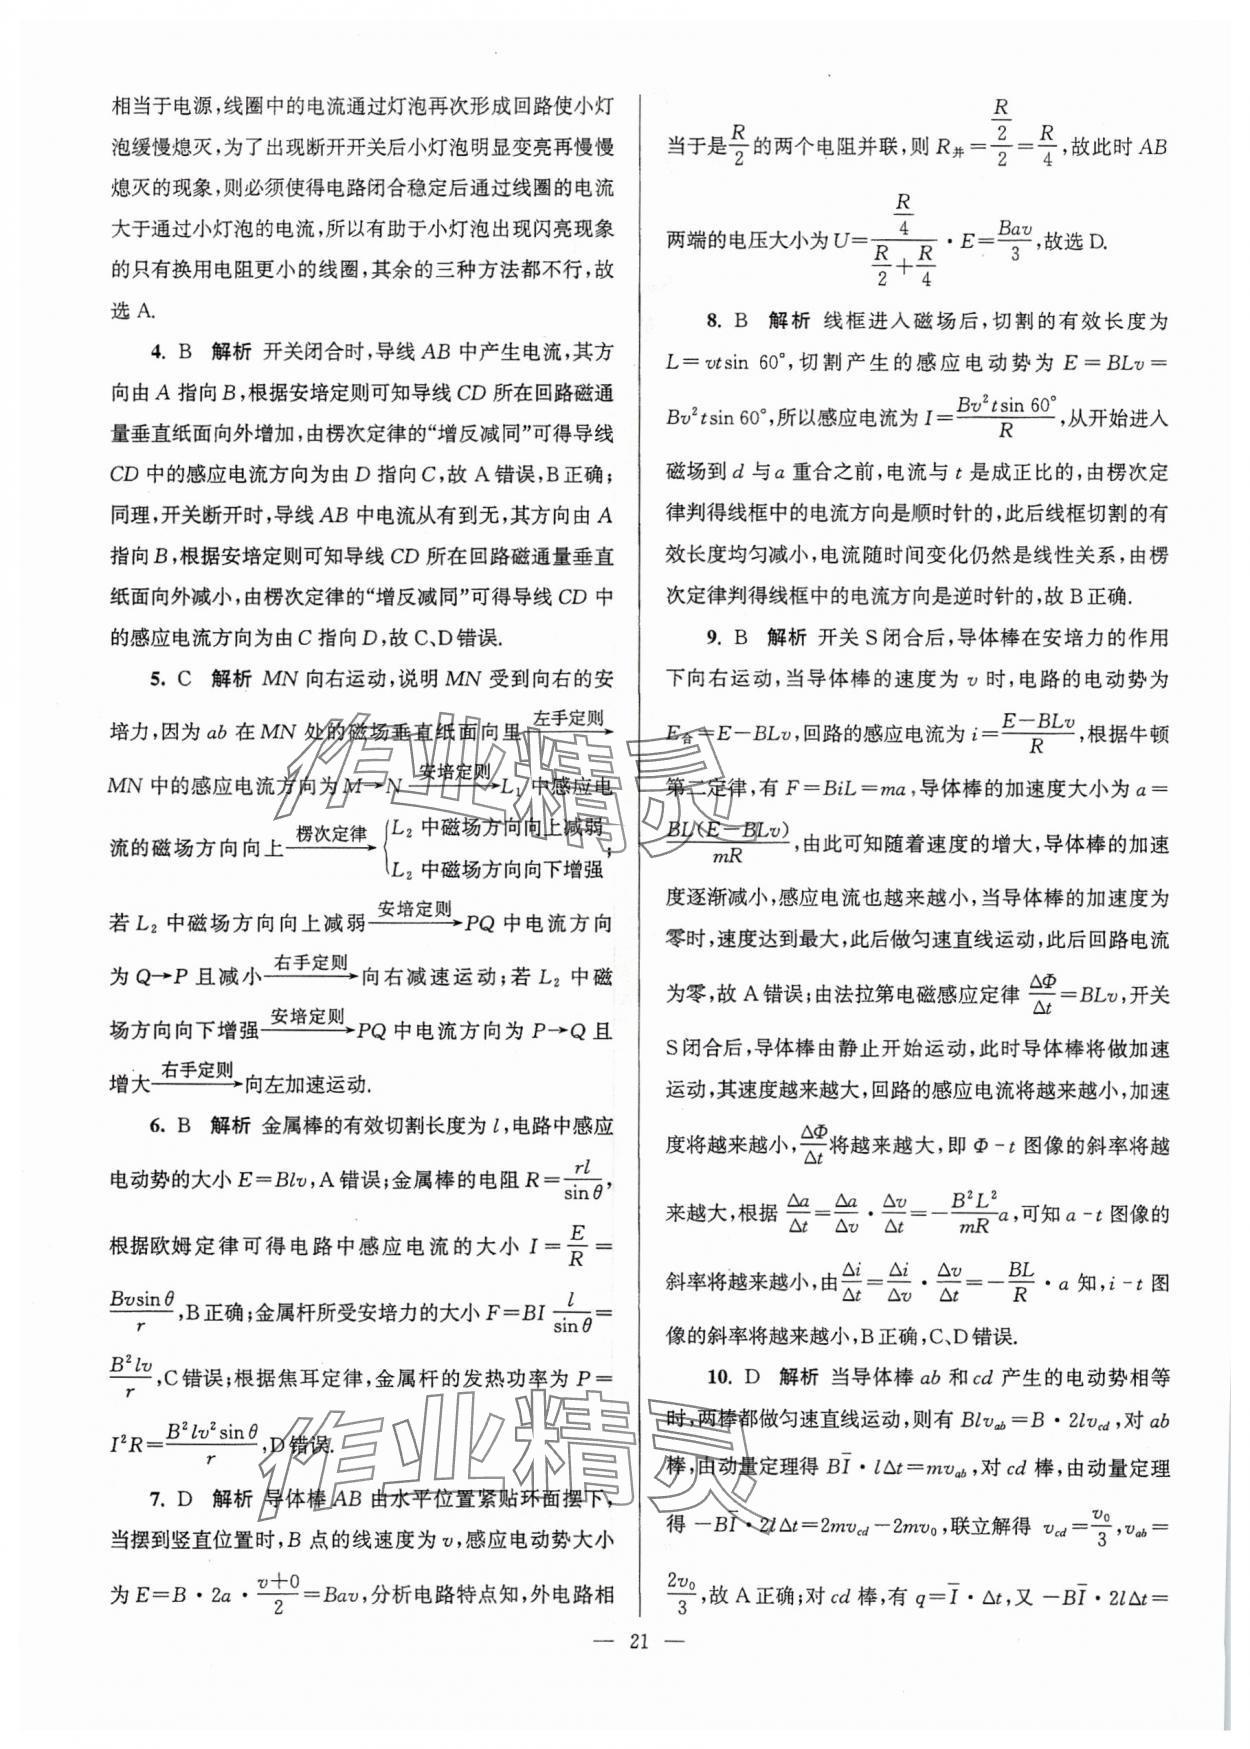 相当于电源,线圈中的电流通过灯泡再次形成回路使小灯
泡缓慢熄灭,为了出现断开开关后小灯泡明显变亮再慢慢
熄灭的现象,则必须使得电路闭合稳定后通过线圈的电流
大于通过小灯泡的电流,所以有助于小灯泡出现闪亮现象
的只有换用电阻更小的线圈,其余的三种方法都不行,故
选 A.
4. B 解析 开关闭合时,导线 AB 中产生电流,其方
向由 A 指向 B,根据安培定则可知导线 CD 所在回路磁通
量垂直纸面向外增加,由楞次定律的“增反减同”可得导线
CD 中的感应电流方向为由 D 指向 C,故 A 错误,B 正确;
同理,开关断开时,导线 AB 中电流从有到无,其方向由 A
指向 B,根据安培定则可知导线 CD 所在回路磁通量垂直
纸面向外减小,由楞次定律的“增反减同”可得导线 CD 中
的感应电流方向为由 C 指向 D,故 C、D 错误.
5. C 解析 MN 向右运动,说明 MN 受到向右的安
培力,因为 ab 在 MN 处的磁场垂直纸面向里 —左手定则→
MN 中的感应电流方向为 M→N —安培定则→ L₁ 中感应电
流的磁场方向向上 —楞次定律→ {L₂ 中磁场方向向上减弱
L₂ 中磁场方向向下增强;
若 L₂ 中磁场方向向上减弱 —安培定则→ PQ 中电流方向
为 Q→P 且减小 —右手定则→ 向右减速运动;若 L₂ 中磁
场方向向下增强 —安培定则→ PQ 中电流方向为 P→Q 且
增大 —右手定则→ 向左加速运动.
6. B 解析 金属棒的有效切割长度为 l,电路中感应
电动势的大小 E=Blv,A 错误;金属棒的电阻 R=rl/sinθ,
根据欧姆定律可得电路中感应电流的大小 I=E/R=
Bvsinθ/r,B 正确;金属杆所受安培力的大小 F=BI l/sinθ=
B²lv/r,C 错误;根据焦耳定律,金属杆的发热功率为 P=
I²R=B²lv²sinθ/r,D 错误.
7. D 解析 导体棒 AB 由水平位置紧贴环面摆下,
当摆到竖直位置时,B 点的线速度为 v,感应电动势大小
为 E=B·2a·(v+0)/2=Bav,分析电路特点知,外电路相
当于是 R/2 的两个电阻并联,则 R并=(R/2)/2=R/4,故此时 AB
两端的电压大小为 U=(R/4)/(R/2+R/4)·E=Bav/3,故选 D.
8. B 解析 线框进入磁场后,切割的有效长度为
L=vtsin 60°,切割产生的感应电动势为 E=BLv=
Bv²tsin 60°,所以感应电流为 I=Bv²tsin 60°/R,从开始进入
磁场到 d 与 a 重合之前,电流与 t 是成正比的,由楞次定
律判得线框中的电流方向是顺时针的,此后线框切割的有
效长度均匀减小,电流随时间变化仍然是线性关系,由楞
次定律判得线框中的电流方向是逆时针的,故 B 正确.
9. B 解析 开关 S 闭合后,导体棒在安培力的作用
下向右运动,当导体棒的速度为 v 时,电路的电动势为
E合=E−BLv,回路的感应电流为 i=(E−BLv)/R,根据牛顿
第二定律,有 F=BiL=ma,导体棒的加速度大小为 a=
BL(E−BLv)/mR,由此可知随着速度的增大,导体棒的加速
度逐渐减小,感应电流也越来越小,当导体棒的加速度为
零时,速度达到最大,此后做匀速直线运动,此后回路电流
为零,故 A 错误;由法拉第电磁感应定律 ΔΦ/Δt=BLv,开关
S 闭合后,导体棒由静止开始运动,此时导体棒将做加速
运动,其速度越来越大,回路的感应电流将越来越小,加速
度将越来越小,ΔΦ/Δt 将越来越大,即 Φ-t 图像的斜率将越
来越大,根据 Δa/Δt=Δa/Δv·Δv/Δt=−(B²L²/mR)a,可知 a-t 图像的
斜率将越来越小,由 Δi/Δt=Δi/Δv·Δv/Δt=−BL/R·a 知,i-t 图
像的斜率将越来越小,B 正确,C、D 错误.
10. D 解析 当导体棒 ab 和 cd 产生的电动势相等
时,两棒都做匀速直线运动,则有 Blv_ab=B·2lv_cd,对 ab
棒,由动量定理得 BĪ·lΔt=mv_ab,对 cd 棒,由动量定理
得 −BĪ·2lΔt=2mv_cd−2mv₀,联立解得 v_cd=v₀/3,v_ab=
2v₀/3,故 A 正确;对 cd 棒,有 q=Ī·Δt,又 −BĪ·2lΔt=
— 21 —
作业精灵
作业精灵